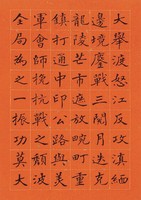 大舉渡怒江反攻滇緬
邊境激戰三閱月迭克
龍陵芒市遮放畹町重
鎮打通中印公路與美
軍會師挽抗戰之頹波
全局為之一振功莫大